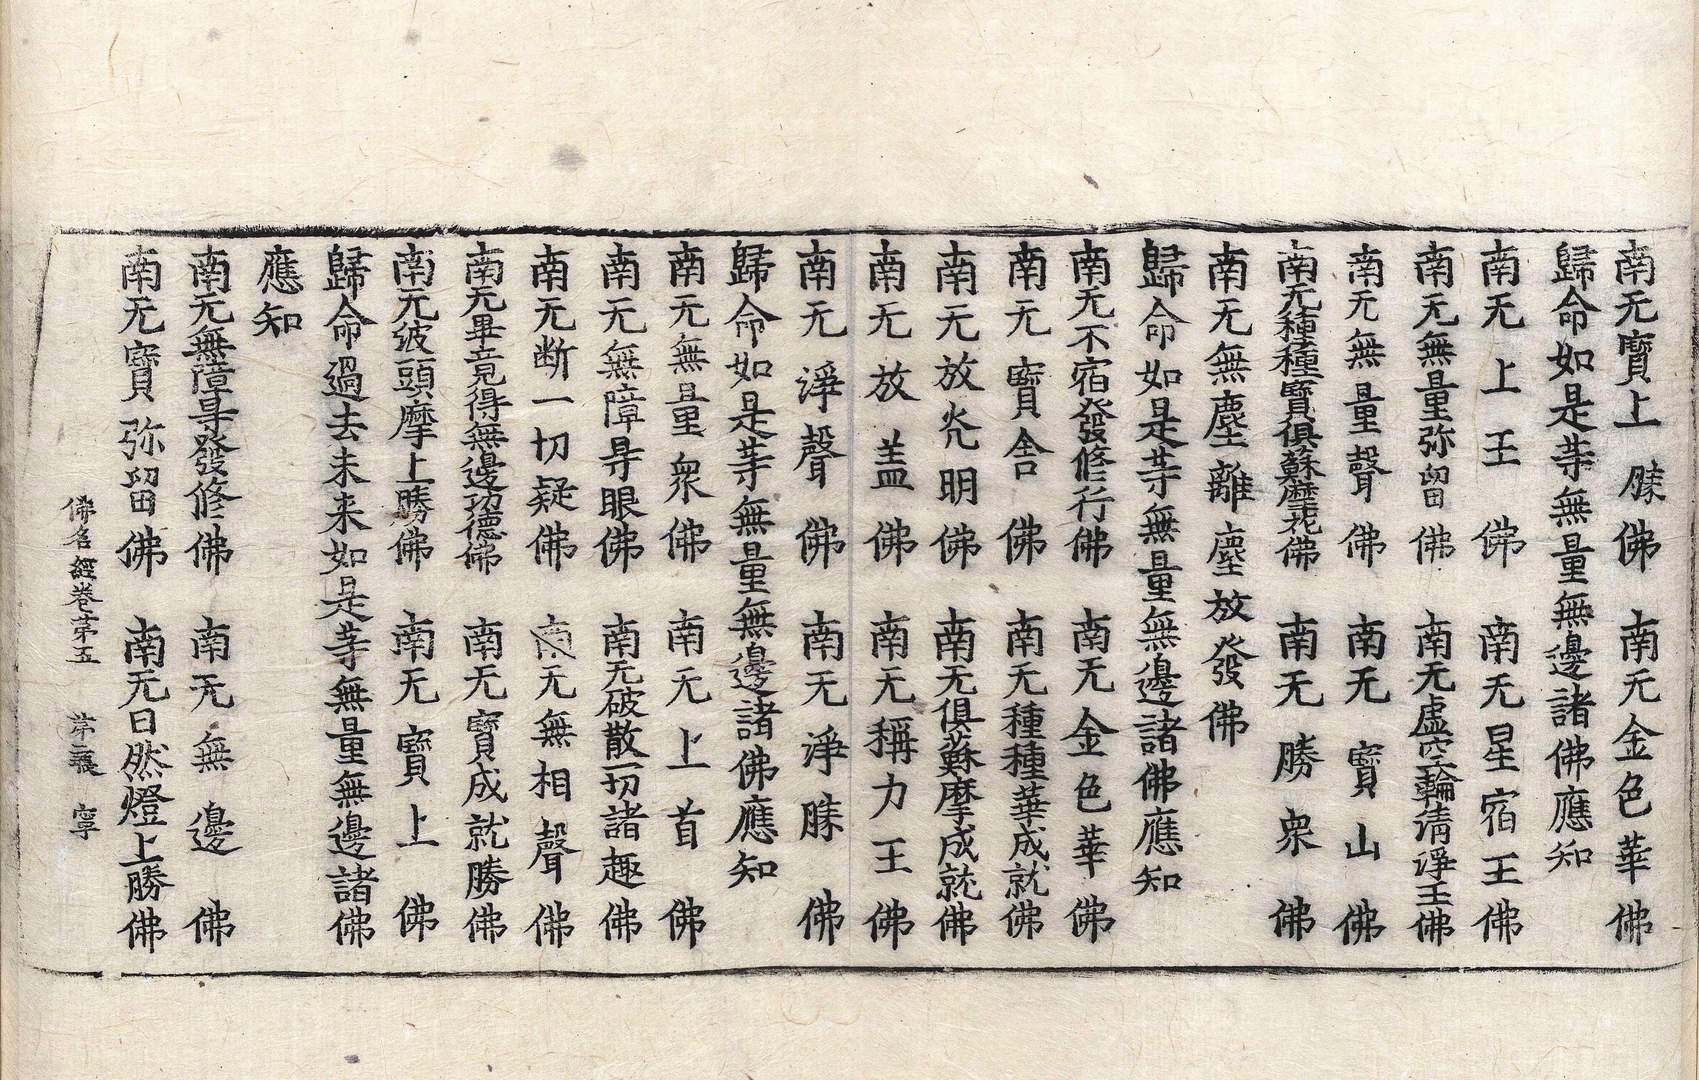 南无寶上勝佛　南无金色華佛
歸命如是䓁無量無邊諸佛應知
南无上王佛　南无星宿王佛
南无無量弥留佛　南无虛空輪清淨王佛
南无無量聲佛　南无寶山佛
南无種種寶俱蘇摩花佛　南无勝衆佛
南无無塵離塵放發佛
歸命如是䓁無量無邊諸佛應知
南无不宿發修行佛　南无金色華佛
南无寶舍佛　南无種種華成就佛
南无放光明佛　南无俱蘇摩成就佛
南无放盖佛　南无稱力王佛
南无淨聲佛　南无淨勝佛
歸命如是䓁無量無邊諸佛應知
南无無量衆佛　南无上首佛
南无無障㝵眼佛　南无破散一切諸趣佛
南无断一切疑佛　南无無相聲佛
南无畢竟得無邊功德佛　南无寶成就勝佛
南无波頭摩上勝佛　南无寶上佛
歸命過去未来如是䓁無量無邊諸佛
應知
南无無障㝵發修佛　南无無邊佛
南无寶弥留佛　南无日然燈上勝佛
佛名經卷苐五　苐二張　寧